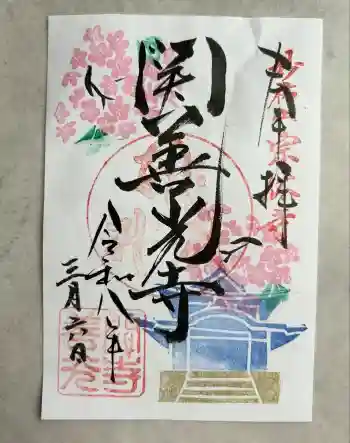 奉拝
関善光寺
令和八年
三月六日